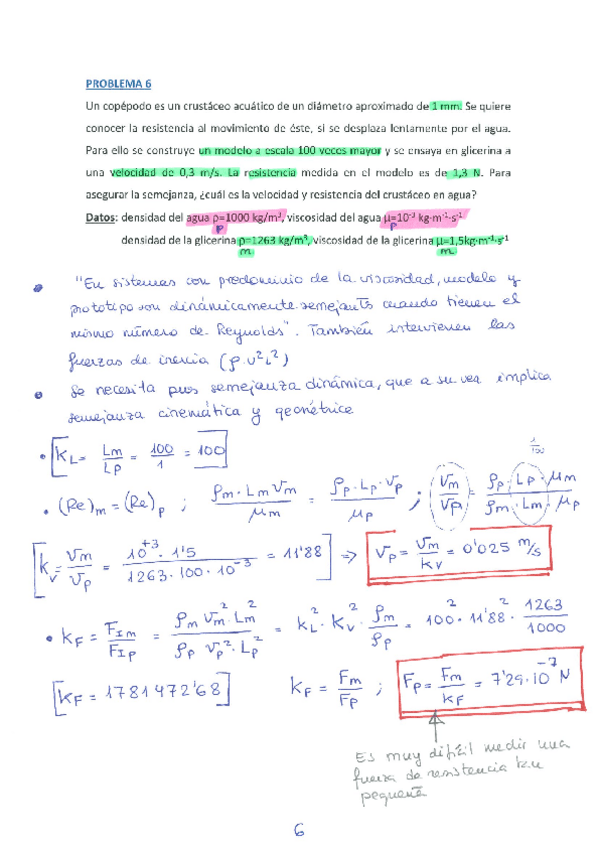 PROBLEMA 6
Un copépodo es un crustáceo acuático de un diámetro aproximado de 1 mm. Se quiere
conocer la resistencia al movimiento de éste, si se desplaza lentamente por el agua.
Para ello se construye un modelo a escala 100 veces mayor y se ensaya en glicerina a
una velocidad de 0,3 m/s. La resistencia medida en el modelo es de 1,3 N. Para
asegurar la semejanza, ¿cuál es la velocidad y resistencia del crustáceo en agua?
Datos: densidad del agua ρ=1000 kg/m³, viscosidad del agua μ=10⁻³ kg·m⁻¹·s⁻¹
P P
densidad de la glicerina ρ=1263 kg/m³, viscosidad de la glicerina μ=1,5kg·m⁻¹·s⁻¹
m m
"En sistemas con predominio de la viscosidad, modelo y
prototipo son dinámicamente semejants cuando tienen el
mismo número de Reynolds". También intervienen las
fuerzas de inercia (ρ·v²L²)
Se necesita pues semejanza dinámica, que a su vez implica
semejanza cinemática y geométrica
1/100
• [K_L = Lm/Lp = 100/1 = 100]
• (Re)m = (Re)p ; ρm·Lm vm/μm = ρp·Lp·vp/μp ; vm/vp = ρp·Lp·μm/ρm·Lm·μp
[Kv = vm/vp = 10⁺³·1'5/1263·100·10⁻³ = 11'88] ⇒ vp = vm/Kv = 0'025 m/s
• KF = FIm/FIp = ρm vm²·Lm²/ρp vp²·Lp² = kL²·Kv²·ρm/ρp = 100²·11'88²·1263/1000
[KF = 1781472'68] KF = Fm/Fp ; Fp = Fm/KF = 7'29·10⁻⁷ N
Es muy difícil medir una
fuerza de resistencia tan
pequeña
6